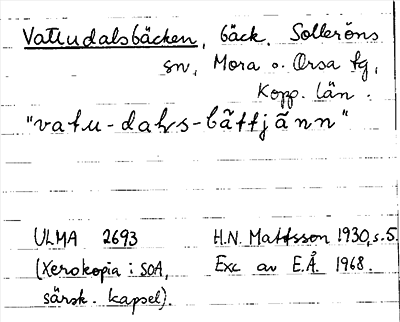 Vattudalsbäcken, bäck. Solleröns
sn, Mora o. Orsa tg,
Kopp. län.
"vatu-dahs-bättjänn"
ULMA 2693 H.N. Mattsson 1930, s. 5.
(Xerokopia i SOA, Exc av E.Å. 1968.
särsk. kapsel).